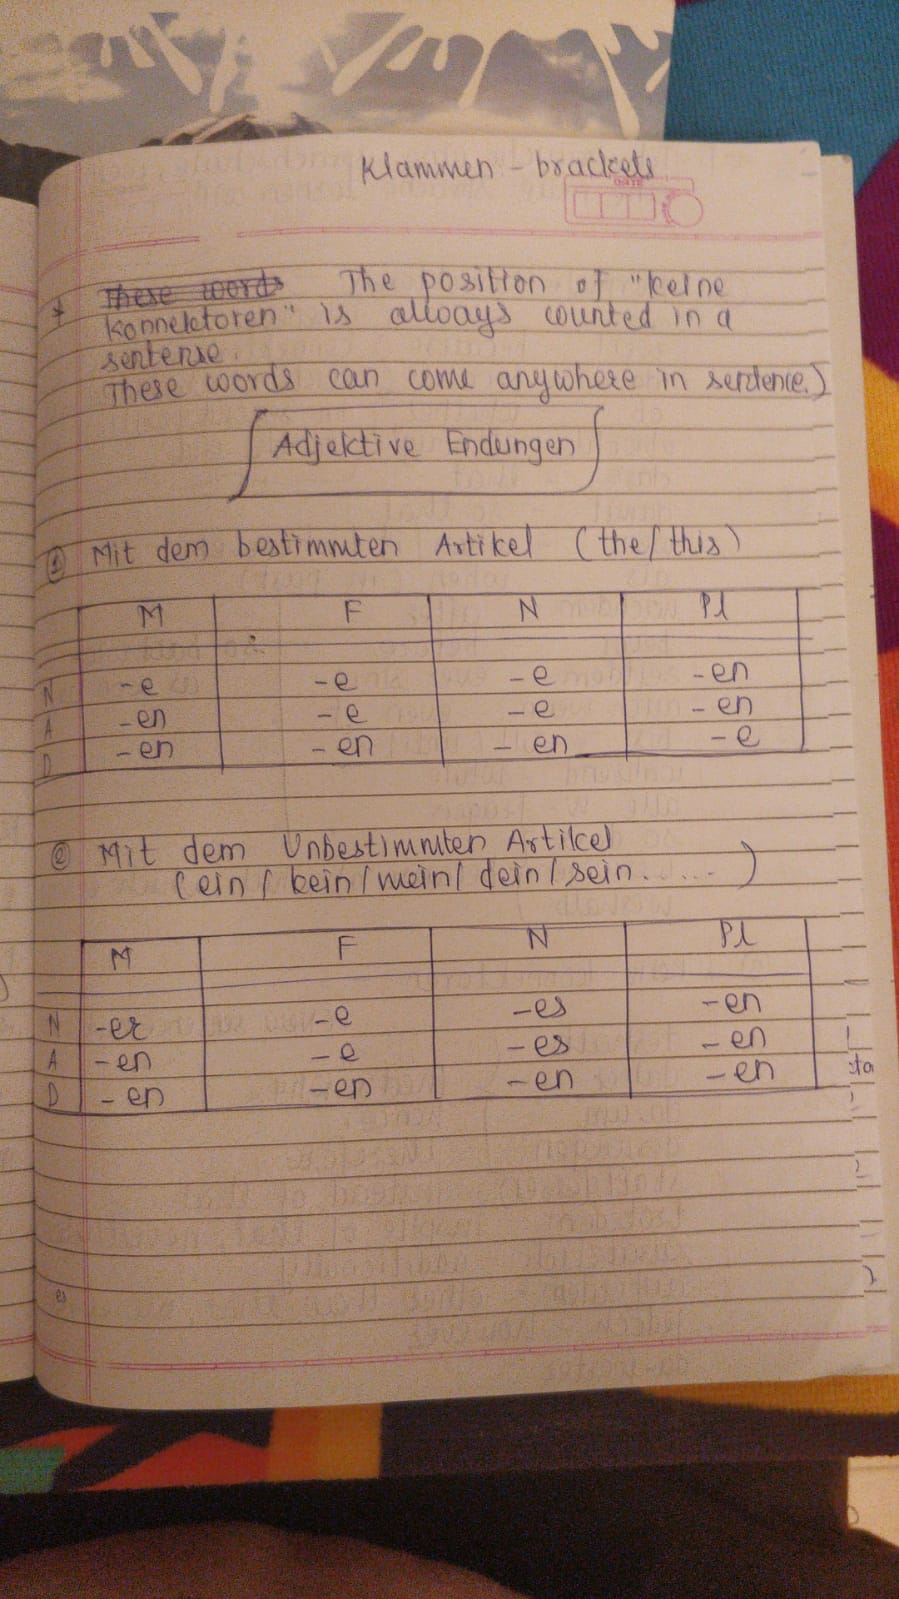 Klammen - brackets
DATE
* These words The position of "keine
Konnektoren" is always counted in a
sentense.
These words can come anywhere in sentence.)
Adjektive Endungen
① Mit dem bestimmten Artikel (the/this)
M F N Pl
N -e -e -e -en
A -en -e -e -en
D -en -en -en -e
② Mit dem Unbestimmten Artikel
(ein / kein / mein / dein / sein. ..... )
M F N Pl
N -er -e -es -en
A -en -e -es -en
D -en -en -en -en
es